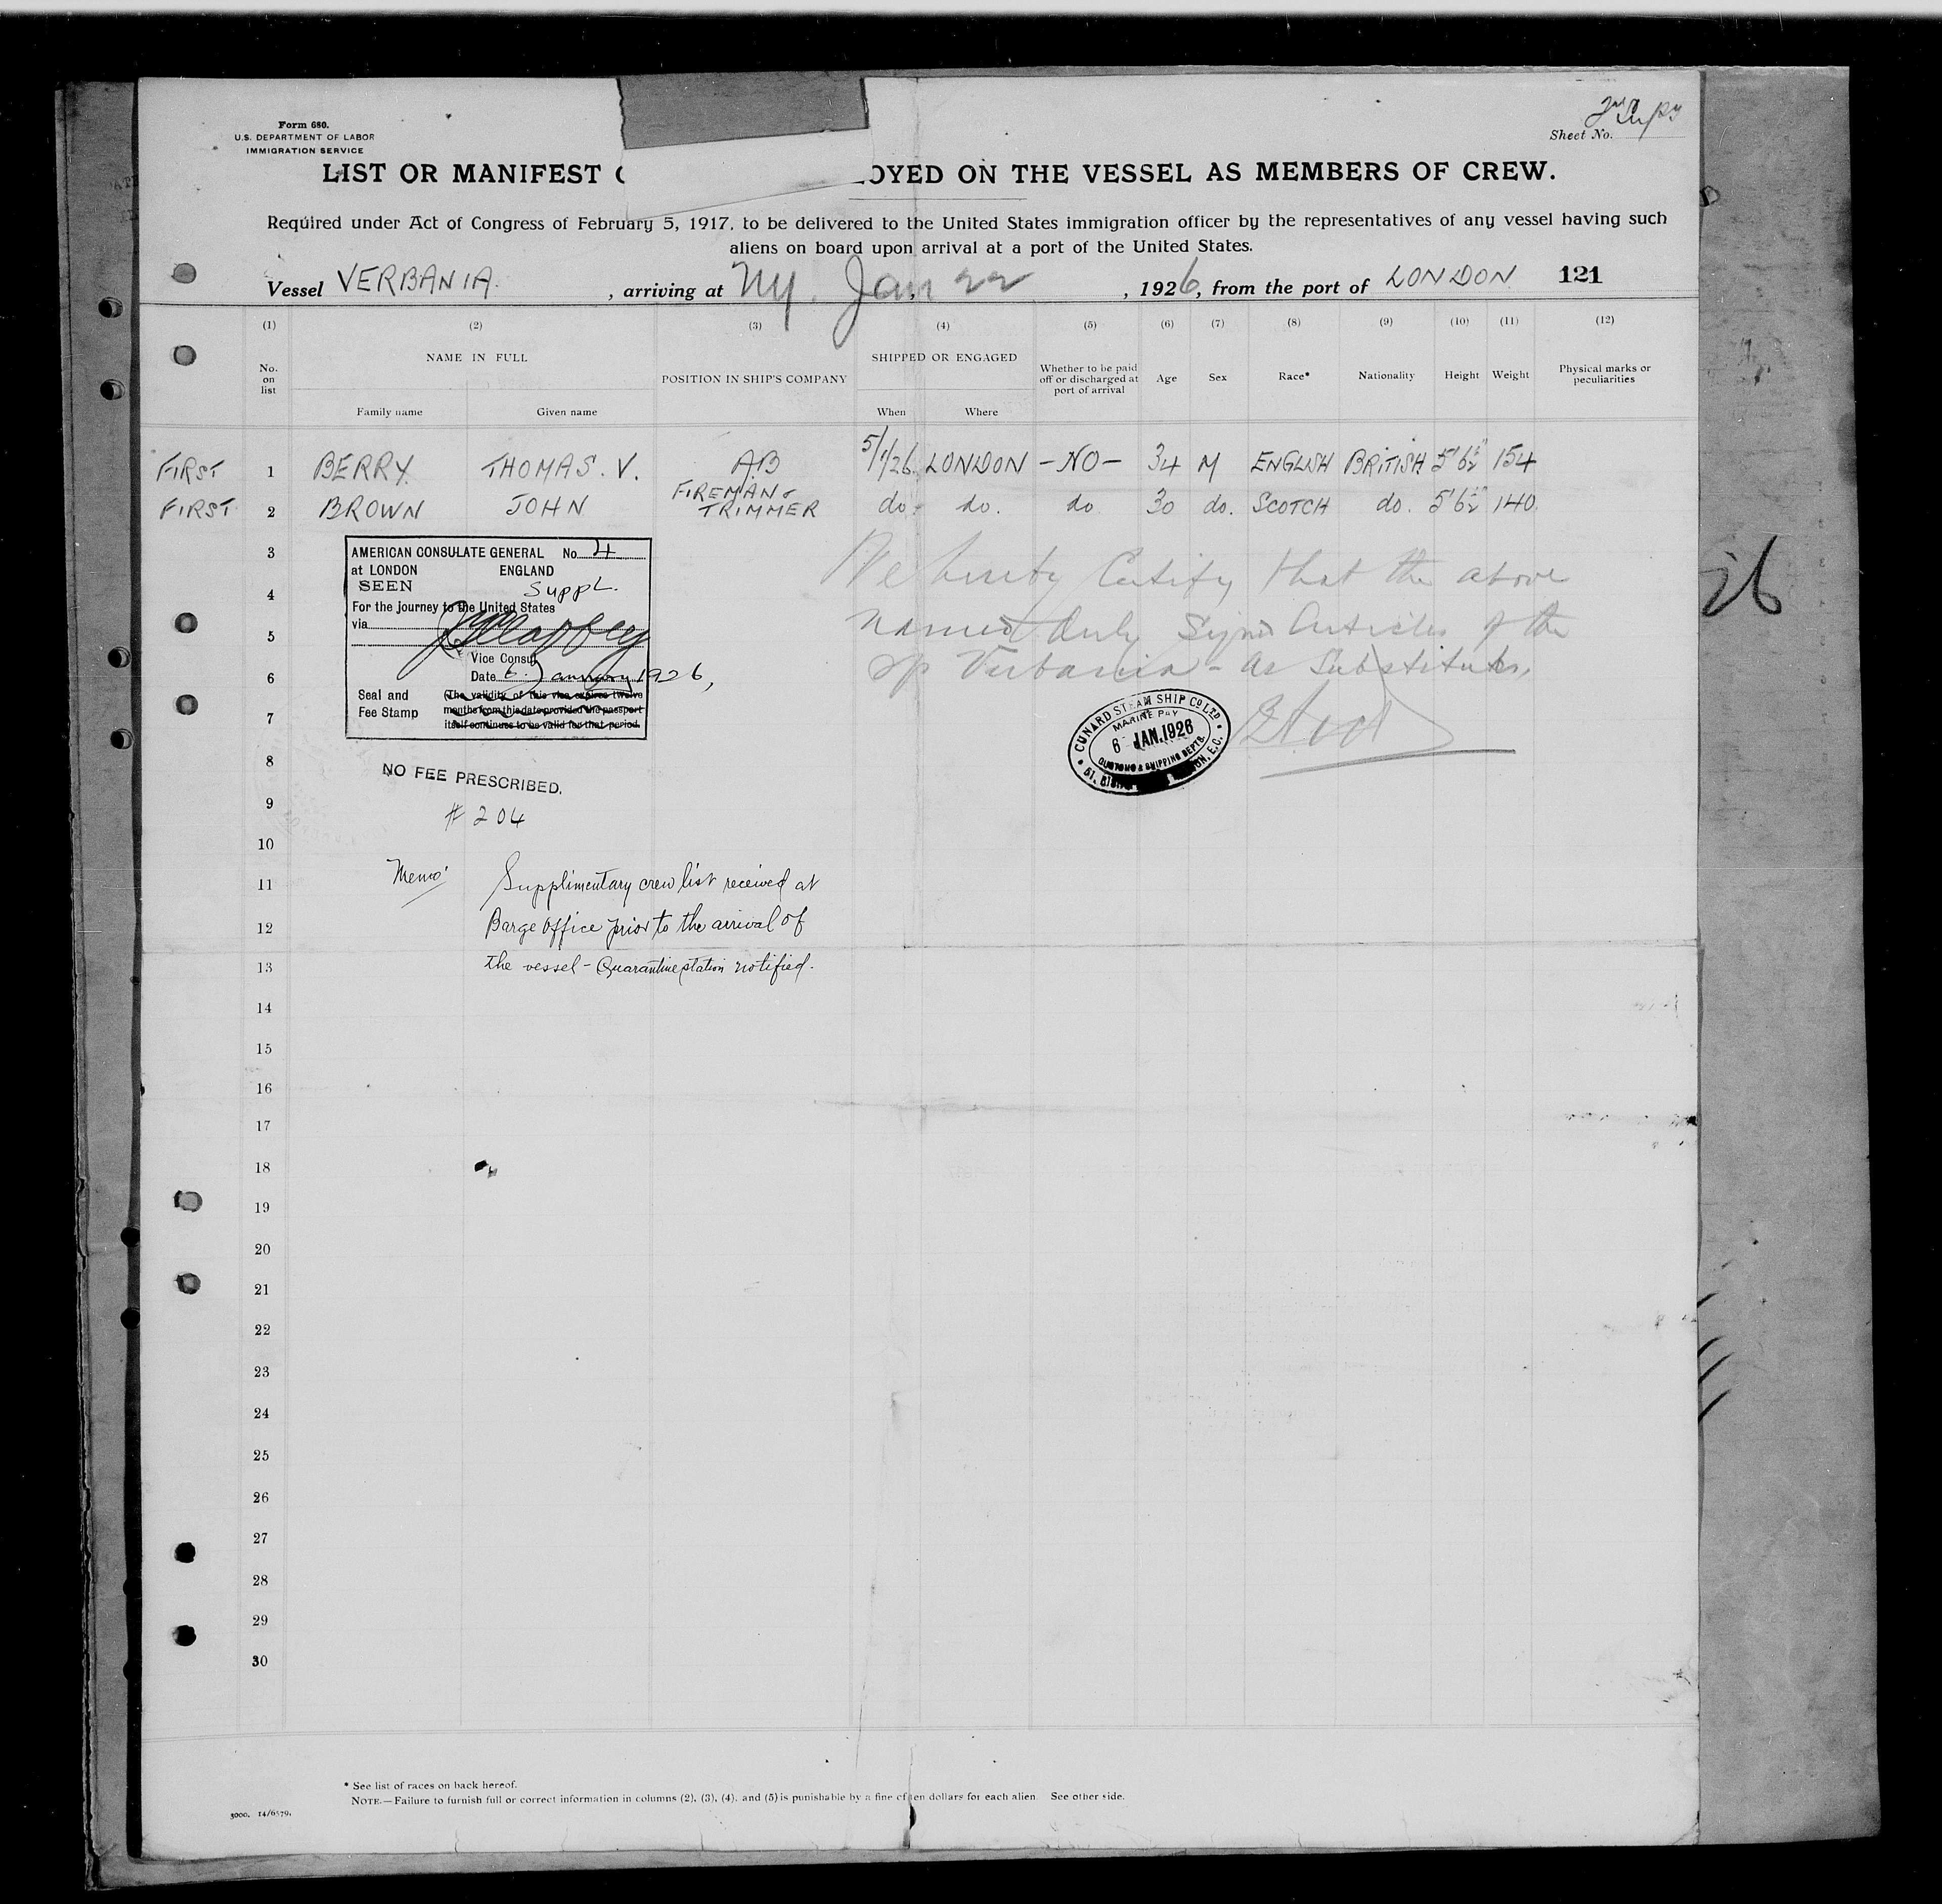 Form 680.
U.S. DEPARTMENT OF LABOR
IMMIGRATION SERVICE
Sheet No.
LIST OR MANIFEST OYED ON THE VESSEL AS MEMBERS OF CREW.
Required under Act of Congress of February 5, 1917, to be delivered to the United States immigration officer by the representatives of any vessel having such
aliens on board upon arrival at a port of the United States.
Vessel VERBANIA. , arriving at NY. Jan 22 , 1926, from the port of LONDON 121
(1) (2) (3) (4) (5) (6) (7) (8) (9) (10) (11) (12)
No. on list NAME IN FULL POSITION IN SHIP'S COMPANY SHIPPED OR ENGAGED Whether to be paid off or discharged at port of arrival Age Sex Race* Nationality Height Weight Physical marks or peculiarities
Family name Given name When Where
FIRST 1 BERRY. THOMAS. V. AB 5/1/26 LONDON -NO- 34 M ENGLISH BRITISH 5'6½" 154
FIRST 2 BROWN JOHN FIREMAN & TRIMMER do. do. do 30 do. SCOTCH do. 5'6½" 140.
3
4
5
6
7
8
9
10
11
12
13
14
15
16
17
18
19
20
21
22
23
24
25
26
27
28
29
30
AMERICAN CONSULATE GENERAL No. 4
at LONDON ENGLAND
SEEN Suppl.
For the journey to the United States
via
Vice Consul
Date 6. January 1926,
Seal and
Fee Stamp
(The validity of this visa expires twelve
months from this date provided the passport
itself continues to be valid for that period.
NO FEE PRESCRIBED.
# 204
We hereby Certify that the above
named duly Signed Articles of the
Verbania - as Substitutes.
CUNARD STEAM SHIP CO LTD
MARINE PAY
6 - JAN. 1926
CUSTOMS & SHIPPING DEPTS.
51, E.C.
Memo' Supplimentary crew list received at
Barge Office prior to the arrival of
the vessel - Quarantine station notified.
26
* See list of races on back hereof.
NOTE.—Failure to furnish full or correct information in columns (2), (3), (4), and (5) is punishable by a fine of ten dollars for each alien. See other side.
3000. 14/6579.